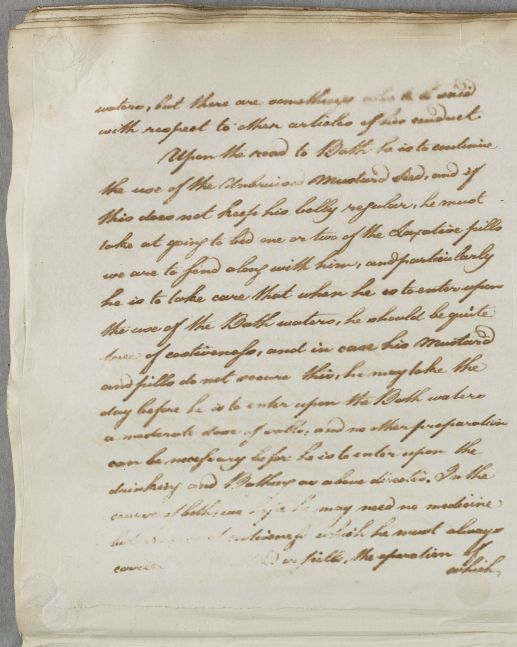 waters, but there are somethings also to be said
with respect to other articles of his conduct
Upon the road to Bath he is to continue
the use of the Unbruised Mustard Seed, and if
this does not keep his belly regular, he must
take at going to bed one or two of the Laxative pills
we are to send along with him, and particularly
he is to take care that when he is to enter upon
the use of the Bath waters, he should be quite
free of costiveness, and in case his Mustard
and pills do not secure this, he may take the
day before he is to enter upon the Bath waters
a moderate dose of salts, and no other preparation
can be necessary before he is to enter upon the
drinking and Bathing as above directed. In the
course of both, we hope he may need no medicine
but costiveness which he must always
pills, the operation of
which